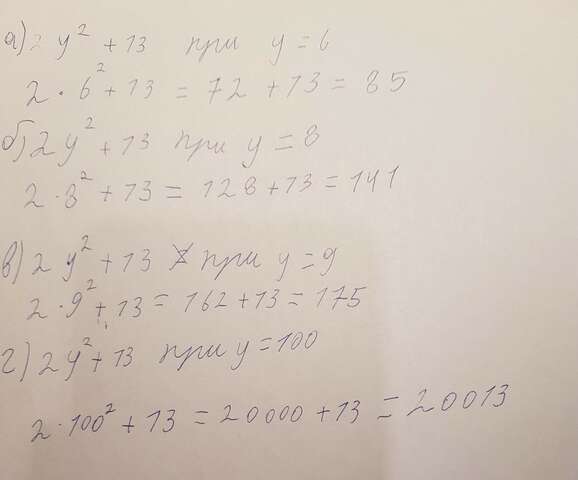 а) 2y² + 13 при y = 6
2 · 6² + 13 = 72 + 13 = 85
б) 2y² + 13 при y = 8
2 · 8² + 13 = 128 + 13 = 141
в) 2y² + 13 при y = 9
2 · 9² + 13 = 162 + 13 = 175
г) 2y² + 13 при y = 100
2 · 100² + 13 = 20000 + 13 = 20013